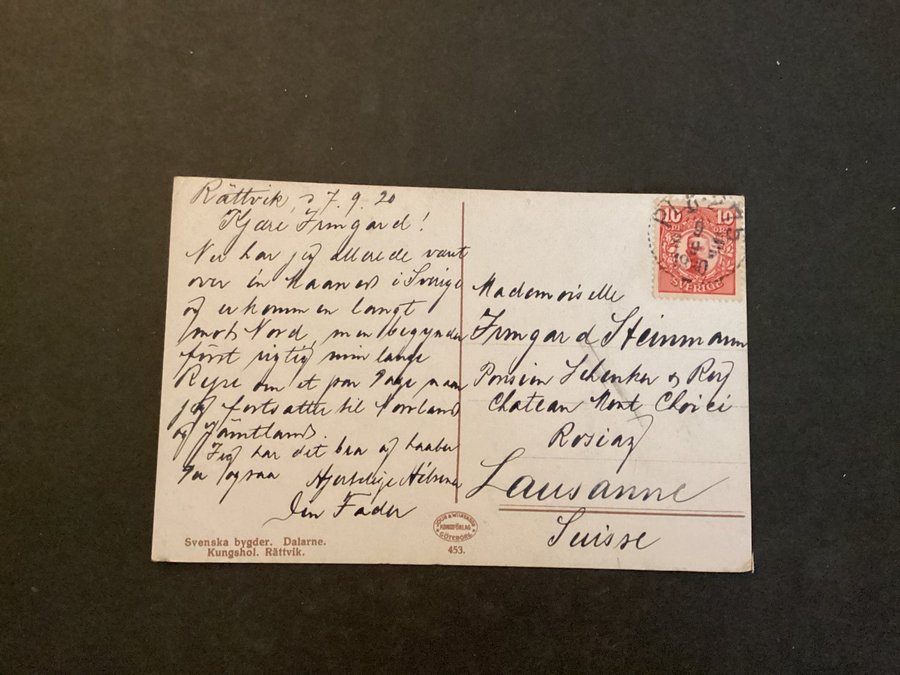 Rättvik, 7.9.20
Kjære Irmgard!
Nu har jeg allerede været
over én Maaned i Sverige
og er kommen langt
mot Nord, men begynder
først rigtig min lange
Rejse om et par Dage naar
jeg fortsætter til Norrland
og Jämtland.
Jeg har det bra og haaber
Du ogsaa Hjertelige Hilsener
Din Fader
Svenska bygder. Dalarne.
Kungshol. Rättvik.
KONSTFÖRLAG
GÖTEBORG
453.
10 10
SVERIGE
Mademoiselle
Irmgard Steinmann
Pension Schenker &
Chateau Mont Choisi
Rosiaz
Lausanne
Suisse